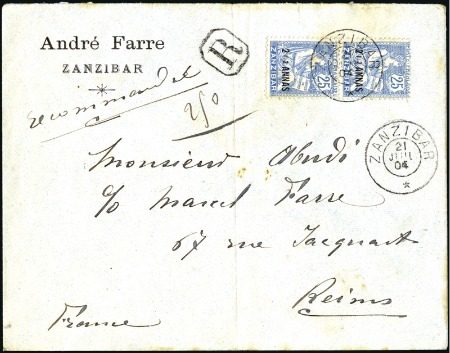 André Farre
ZANZIBAR
R
ZANZIBAR
2½ ANNAS
25
ZANZIBAR
2½ ANNAS
25
ZANZIBAR
recommandé
250
ZANZIBAR
21
JUIL
04
Monsieur
c/o Marcel Farre
67 rue Jacquart
Reims
France